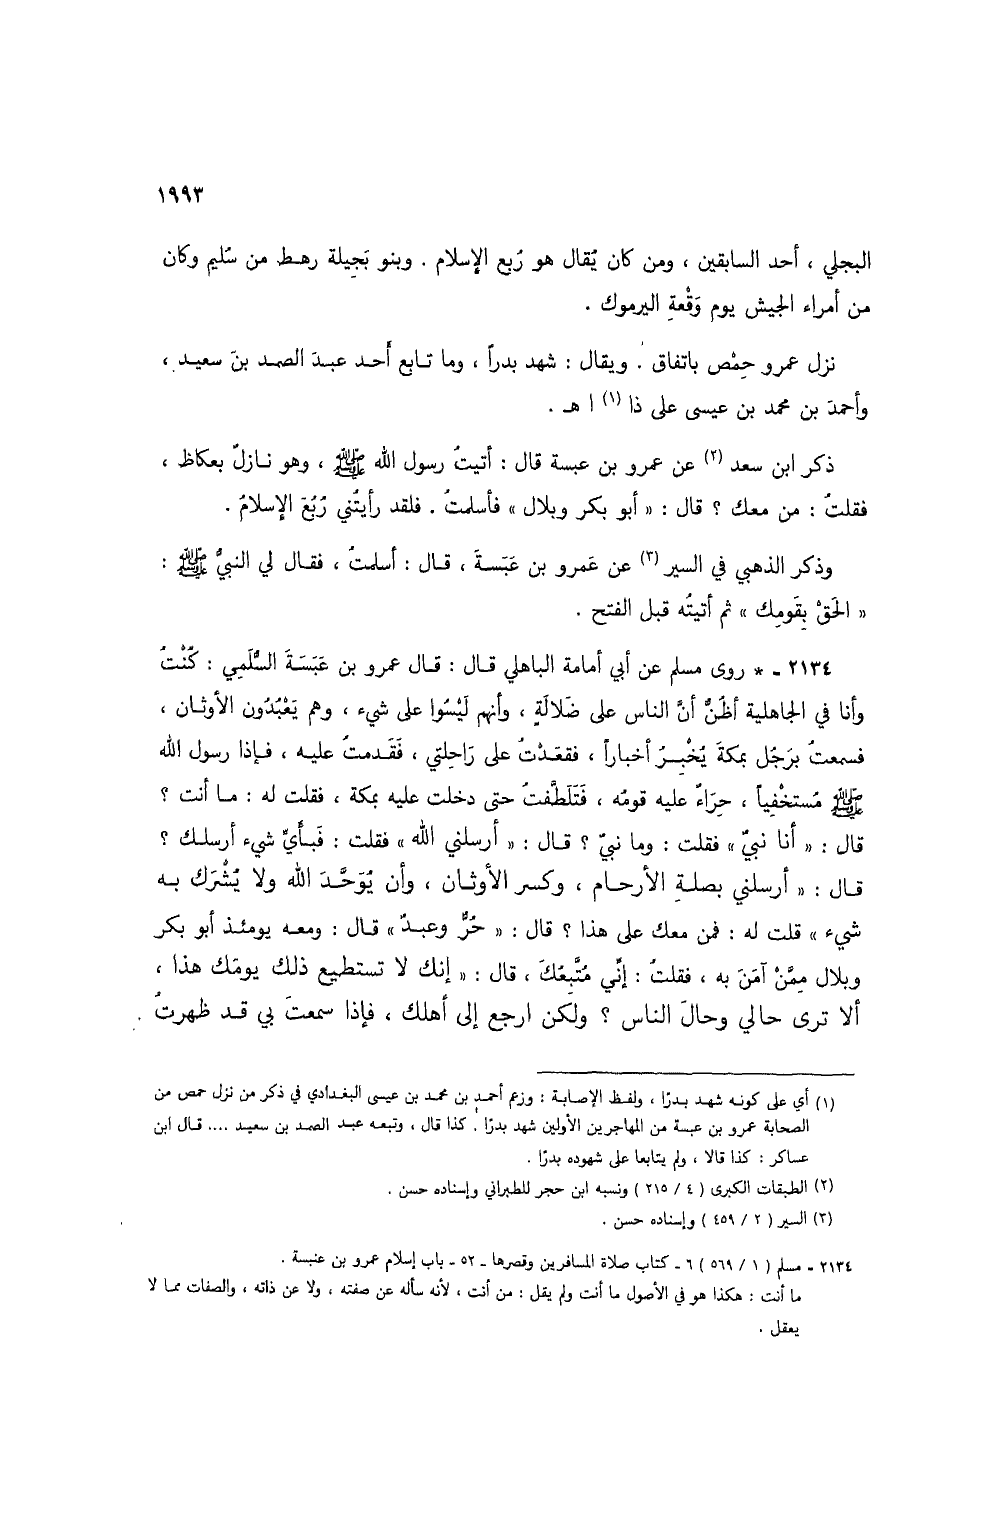 ١٩٩٣
البجلي ، أحد السابقين ، ومن كان يُقال هو رُبع الإسلام . وبنو بَجيلة رهـط من سُليم وكان
من أمراء الجيش يوم وَقْعةِ اليرموك .
نزل عمرو حِمْص باتفاق . ويقال : شهد بدراً ، وما تـابع أحـد عبـدَ الصمـد بنَ سعيـد ،
وأحمدَ بن محمد بن عيسى على ذا (١) ا هـ .
ذكر ابن سعد (٢) عن عمرو بن عبسة قال : أتيتُ رسول الله ﷺ ، وهو نـازلٌ بعكاظ ،
فقلتُ : من معك ؟ قال : « أبو بكر وبلال » فأسلمتُ . فلقد رأيتُني رُبُعَ الإسلامُ .
وذكر الذهبي في السير (٣) عن عَمرو بن عَبَسـةَ ، قـال : أسلمتُ ، فقـال لي النبيُّ ﷺ :
« الحَقْ بِقَومِك » ثم أتيتُه قبل الفتح .
٢١٣٤ - * روى مسلم عن أبي أمامة الباهلي قـال : قـال عمرو بن عَبَسَـةَ السُّلَمي : كُنْتُ
وأنا في الجاهلية أظُنُّ أنَّ الناس على ضَلالَةٍ ، وأنهم لَيْسُوا على شيء ، وهم يَعْبُدُون الأوثـان ،
فسمعتُ برَجُل بمكةَ يُخْبِـرُ أخباراً ، فقعَدْتُ على رَاحِلتي ، فَقَدمتُ عليـه ، فـإذا رسول الله
ﷺ مُستخْفِياً ، حِرَاءٌ عليه قومُه ، فَتَلَطَّفتُ حتى دخلت عليه بمكة ، فقلت له : مـا أنت ؟
قال : « أنا نبيّ » فقلت : وما نبيّ ؟ قـال : « أرسلني الله » فقلت : فَبـأَيِّ شيء أرسلـك ؟
قـال : « أرسلني بصلـةِ الأرحـام ، وكسر الأوثـان ، وأن يُوَحَّـدَ الله ولا يُشْرَك بـه
شيء » قلت له : فمن معك على هذا ؟ قال : « حُرٌّ وعبـدٌ » قـال : ومعـه يومئـذ أبو بكر
وبلال مِمَّنْ آمَنَ به ، فقلتُ : إنِّي مُتَّبِعُكَ ، قال : « إنك لا تستطيع ذلك يومَك هذا ،
ألا ترى حـالي وحـالَ النـاس ؟ ولكن ارجع إلى أهلك ، فإذا سمعتَ بي قـد ظهرتُ
(١) أي على كونـه شهـد بـدرًا ، ولفـظ الإصـابـة : وزعم أحمـد بن محمـد بن عيسى البغـدادي في ذكر من نزل حمص من
الصحابة عمرو بن عبسة من المهاجرين الأولين شهد بدرًا . كذا قال ، وتبعـه عبـد الصمـد بن سعيـد .... قـال ابن
عسـاكر : كذا قالا ، ولم يتابعا على شهوده بدرًا .
(٢) الطبقات الكبرى ( ٤ / ٢١٥ ) ونسبه ابن حجر للطبراني وإسناده حسن .
(٣) السير ( ٢ / ٤٥٩ ) وإسناده حسن .
٢١٣٤ - مسلم ( ١ / ٥٦٩ ) ٦ - كتاب صلاة المسافرين وقصرها - ٥٢ - باب إسلام عمرو بن عنبسة .
ما أنت : هكذا هو في الأصول ما أنت ولم يقل : من أنت ، لأنه سأله عن صفته ، ولا عن ذاته ، والصفات ممـا لا
يعقل .